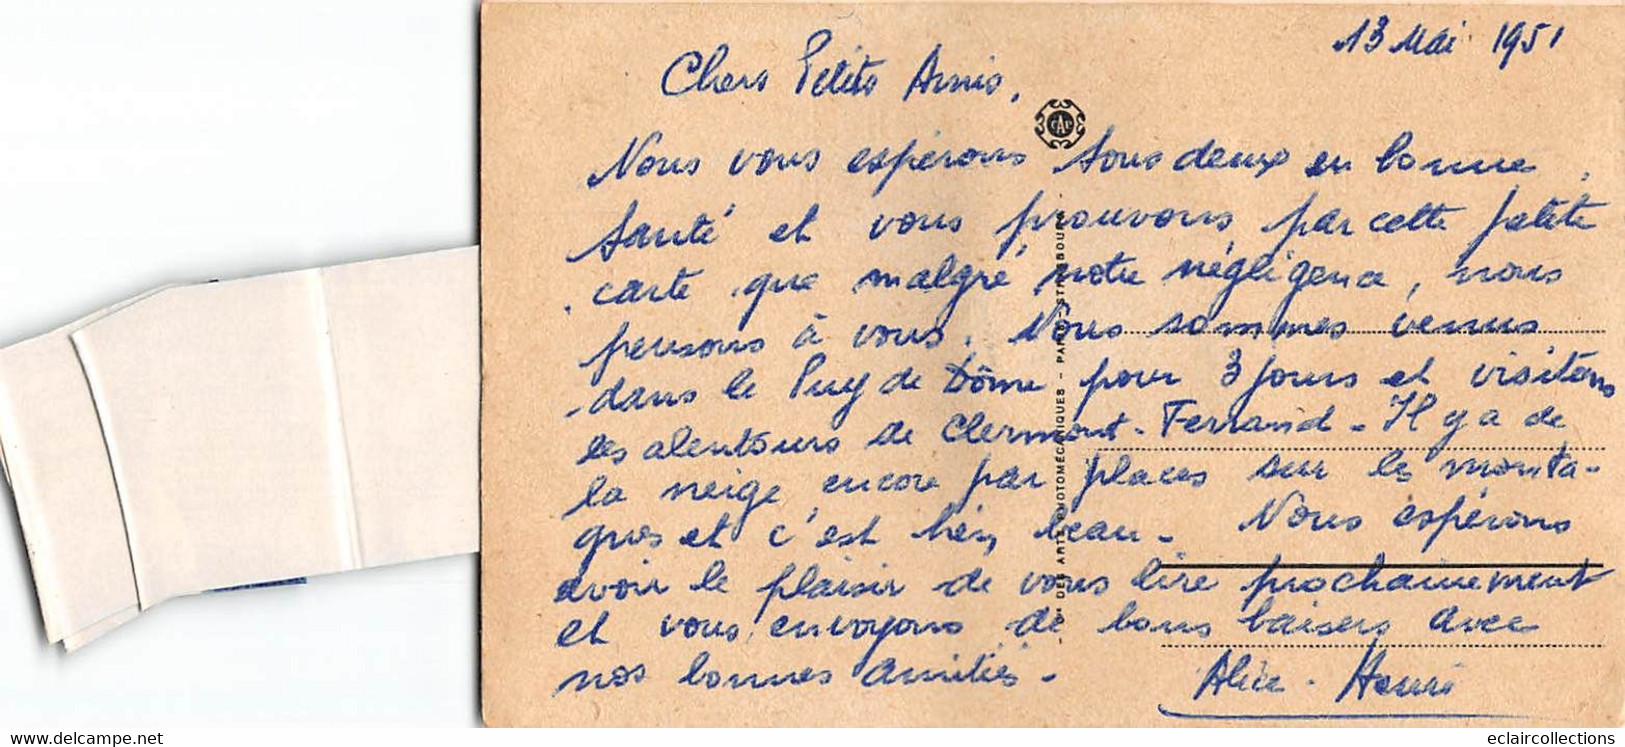 13 Mai 1951
Chers Petits Amis,
Nous vous espérons tous deux en bonne
santé et vous prouvons par cette petite
carte que malgré notre négligence, nous
pensons à vous. Nous sommes venus
dans le Puy de Dôme pour 3 jours et visitons
les alentours de Clermont-Ferrand - Il y a de
la neige encore par places sur les monta-
gnes et c'est bien beau - Nous espérons
avoir le plaisir de vous lire prochainement
et vous envoyons de bons baisers avec
nos bonnes amitiés -
Alice - Henri
CAP
DES ARTS PHOTOMÉCANIQUES - PARIS-STRASBOURG
www.delcampe.net
eclaircollections